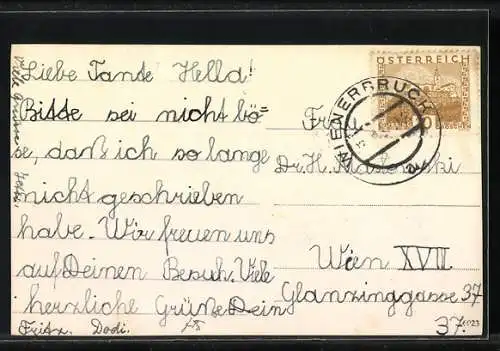 Liebe Tante Hella!
Bitte sei nicht bö=
se, daß ich so lange
nicht geschrieben
habe. Wir freuen uns
auf Deinen Besuch. Viele
herzliche Grüße Dein
Fritz. Dodi.
Viele
ÖSTERREICH
WIENERBRUCK
Dr. H.
Wien XVIII.
Glanzinggasse 37
37.